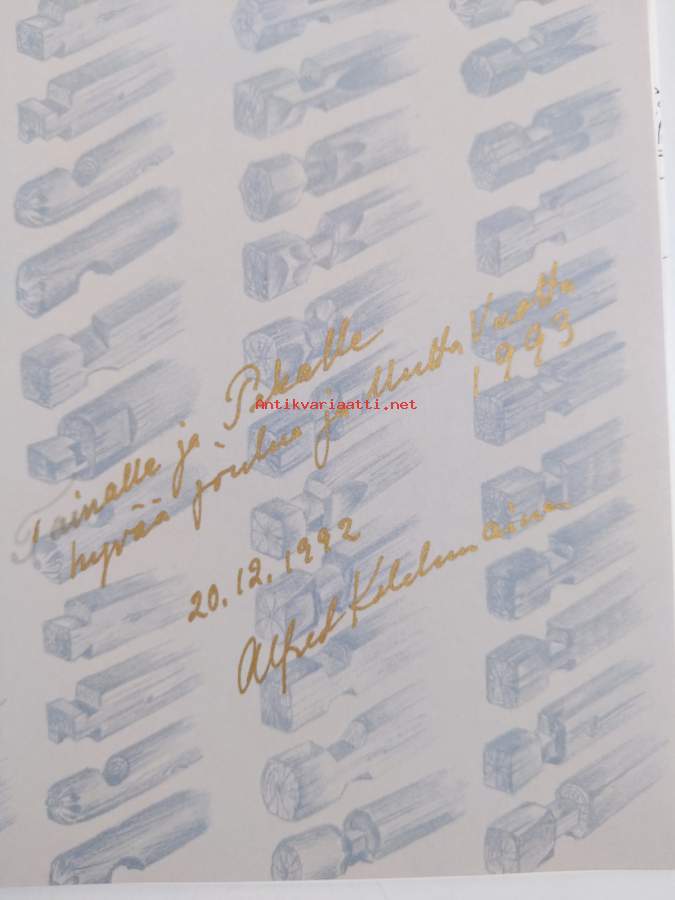 Tainalle ja Pekalle
hyvää joulua ja Uutta Vuotta
1993
Antikvariaatti.net
20.12.1992
Alfred Kolehmainen